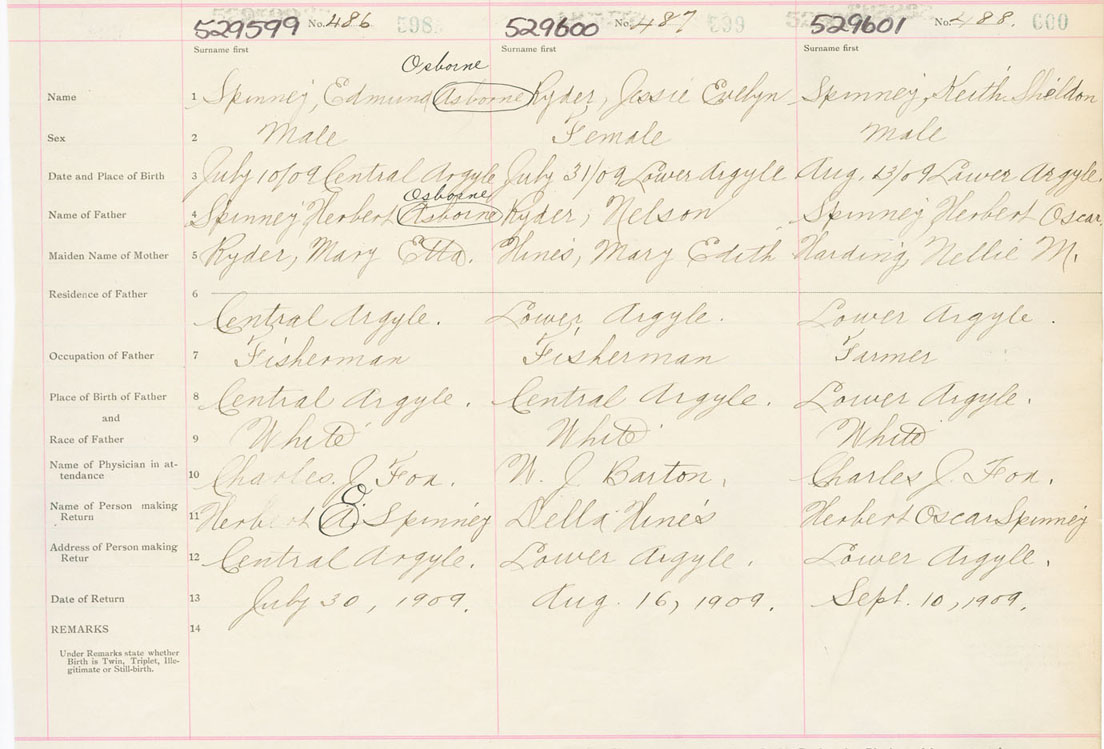 529599 No. 486 598 529600 No. 487 599 529601 No. 488. 600
Surname first Surname first Surname first
Osborne
Name 1 Spinney, Edmund Asborne Ryder, Jessie Evelyn Spinney, Keith Sheldon
Sex 2 Male Female Male
Date and Place of Birth 3 July 10/09 Central Argyle July 31/09 Lower Argyle Aug. 23/09 Lower Argyle.
Osborne
Name of Father 4 Spinney, Herbert Asborne Ryder, Nelson Spinney, Herbert Oscar
Maiden Name of Mother 5 Ryder, Mary Etta. Hines, Mary Edith Harding, Nellie M.
Residence of Father 6
Central Argyle. Lower Argyle. Lower Argyle.
Occupation of Father 7 Fisherman Fisherman Farmer
Place of Birth of Father 8 Central Argyle. Central Argyle. Lower Argyle.
and
Race of Father 9 White White White
Name of Physician in at-
tendance 10 Charles J. Fox. W. J. Barton. Charles J. Fox.
O
Name of Person making
Return 11 Herbert A. Spinney Della Hines Herbert Oscar Spinney
Address of Person making
Retur 12 Central Argyle. Lower Argyle. Lower Argyle.
Date of Return 13 July 30, 1909. Aug. 16, 1909. Sept. 10, 1909.
REMARKS 14
Under Remarks state whether
Birth is Twin, Triplet, Ille-
gitimate or Still-birth.